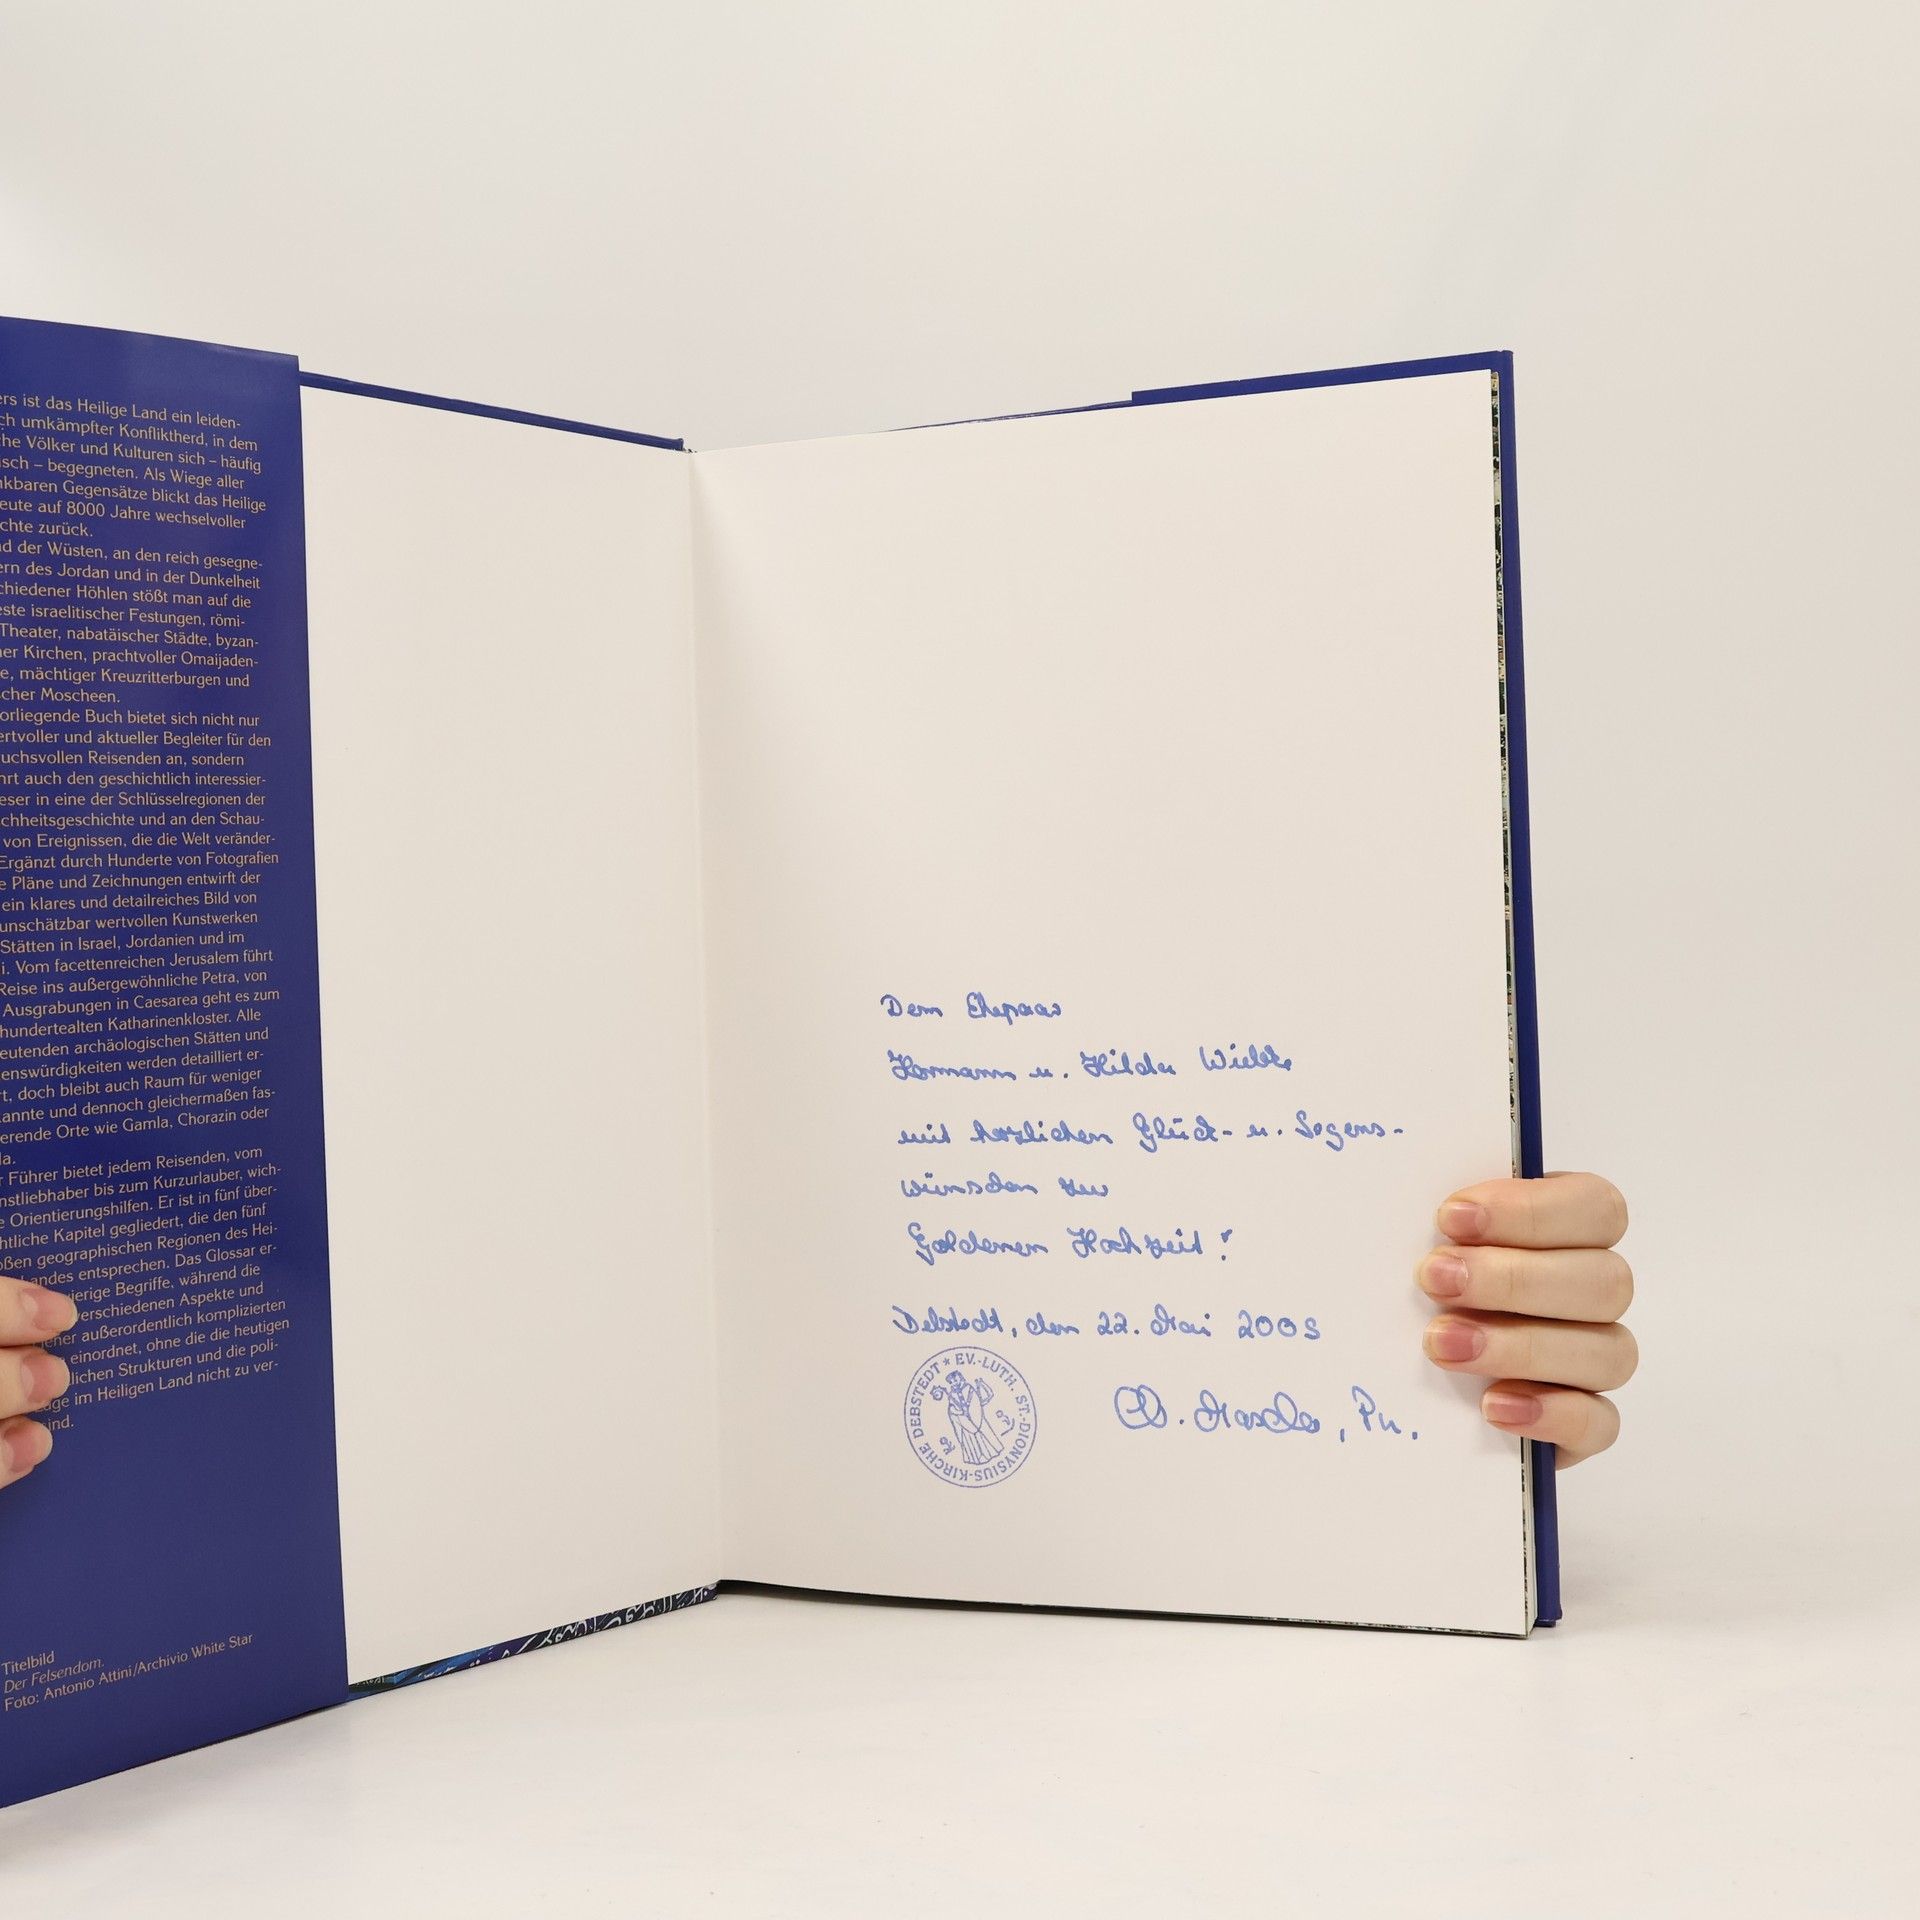 ers ist das Heilige Land ein leiden-
ch umkämpfter Konfliktherd, in dem
che Völker und Kulturen sich – häufig
sch – begegneten. Als Wiege aller
nkbaren Gegensätze blickt das Heilige
eute auf 8000 Jahre wechselvoller
chte zurück.
d der Wüsten, an den reich gesegne-
ern des Jordan und in der Dunkelheit
chiedener Höhlen stößt man auf die
este israelitischer Festungen, römi-
Theater, nabatäischer Städte, byzan-
er Kirchen, prachtvoller Omaijaden-
e, mächtiger Kreuzritterburgen und
cher Moscheen.
orliegende Buch bietet sich nicht nur
ertvoller und aktueller Begleiter für den
uchsvollen Reisenden an, sondern
hrt auch den geschichtlich interessier-
eser in eine der Schlüsselregionen der
chheitsgeschichte und an den Schau-
von Ereignissen, die die Welt veränder-
Ergänzt durch Hunderte von Fotografien
e Pläne und Zeichnungen entwirft der
ein klares und detailreiches Bild von
unschätzbar wertvollen Kunstwerken
Stätten in Israel, Jordanien und im
i. Vom facettenreichen Jerusalem führt
Reise ins außergewöhnliche Petra, von
Ausgrabungen in Caesarea geht es zum
hundertealten Katharinenkloster. Alle
eutenden archäologischen Stätten und
enswürdigkeiten werden detailliert er-
rt, doch bleibt auch Raum für weniger
kannte und dennoch gleichermaßen fas-
erende Orte wie Gamla, Chorazin oder
la.
r Führer bietet jedem Reisenden, vom
nstliebhaber bis zum Kurzurlauber, wich-
e Orientierungshilfen. Er ist in fünf über-
htliche Kapitel gegliedert, die den fünf
oßen geographischen Regionen des Hei-
andes entsprechen. Das Glossar er-
ierige Begriffe, während die
verschiedenen Aspekte und
einer außerordentlich komplizierten
einordnet, ohne die die heutigen
lichen Strukturen und die poli-
age im Heiligen Land nicht zu ver-
ind.
Titelbild
Der Felsendom.
Foto: Antonio Attini/Archivio White Star
Dem Ehepaar
Hermann u. Hilda Wiebke
mit herzlichen Glück- u. Segens-
wünschen zur
Goldenen Hochzeit!
Debstedt, den 22. Mai 2005
EV.-LUTH. ST.-DIONYSIUS-KIRCHE DEBSTEDT *